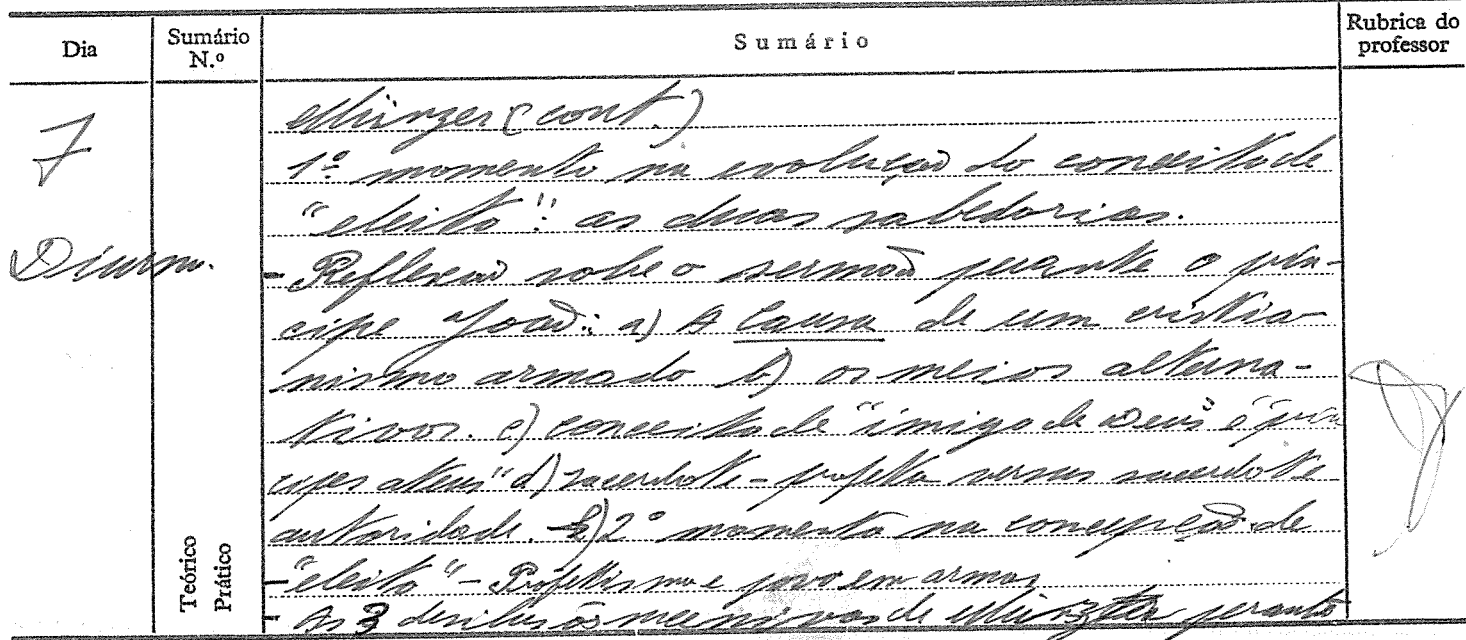 Dia
Sumário N.º
Sumário
Rubrica do professor
7
Diurno.
Münzer (cont.)
1º momento na evolução do conceito de
"eleito": as duas sabedorias.
- Reflexão sobre o sermão perante o prín-
cipe João: a) A Causa de um cristia-
nismo armado b) os meios alterna-
tivos. c) conceito de "imigo de Deus" e "prín
cipes ateus" d) sacerdote-profeta versus sacerdote
autoridade. 2º momento na concepção de
- "eleito" - Profetismo e povo em armas
- As 3 desilusões de perante
Teórico
Prático